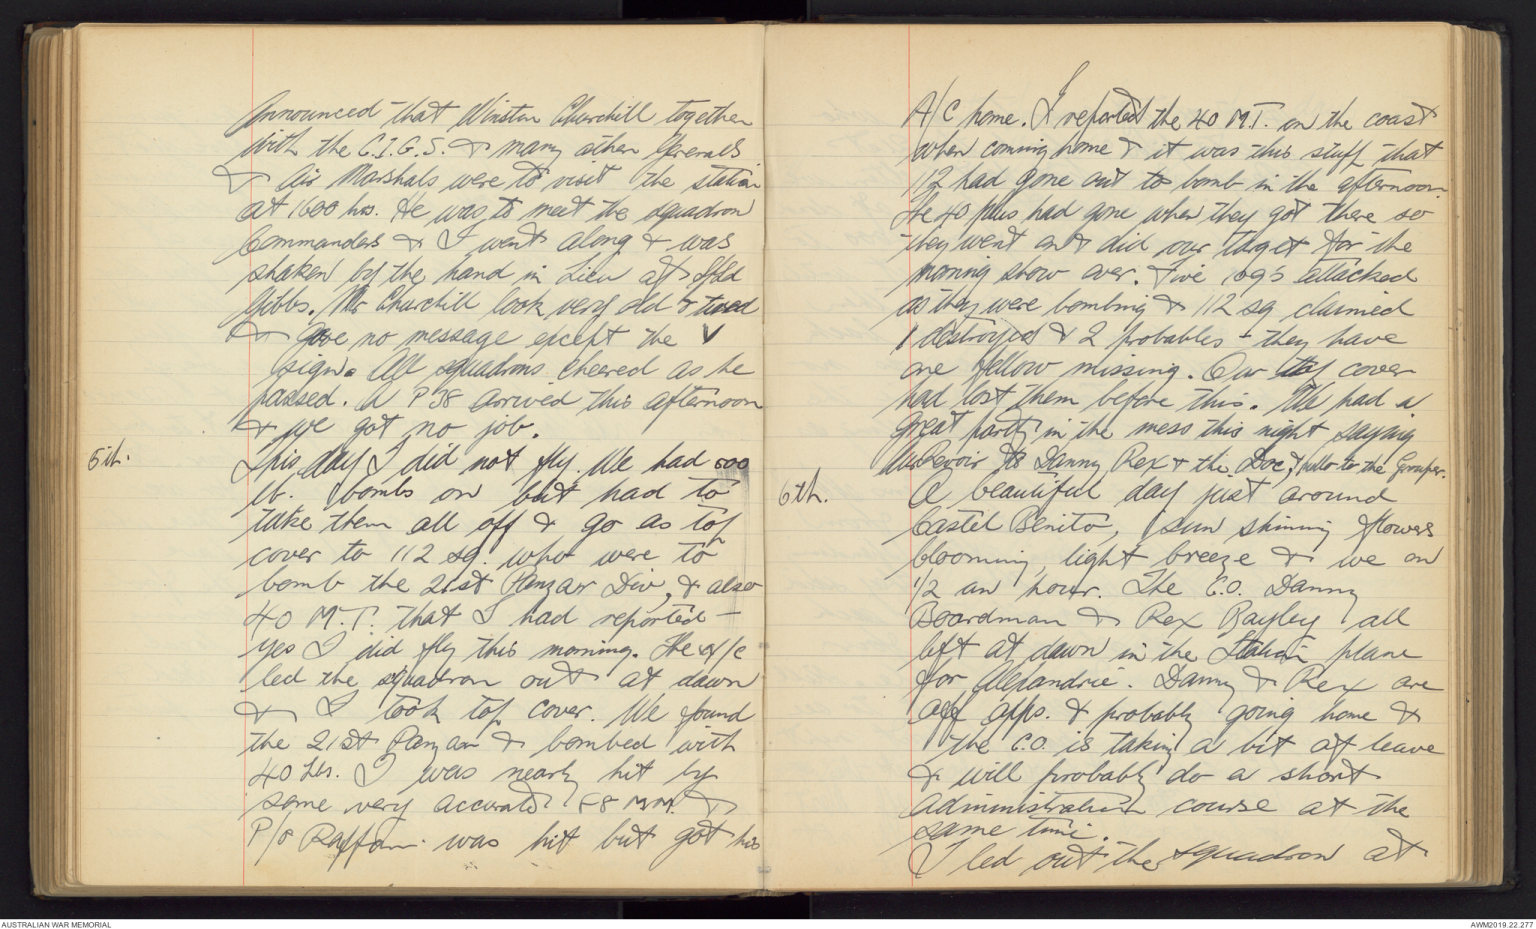 Announced that Winston Churchill together
with the C.I.G.S. & many other Generals
& Air Marshals were to visit the station
at 1600 hrs. He was to meet the squadron
Commanders & I went along & was
shaken by the hand in Lieu of S/Ld
Gibbs. Mr Churchill look very old & tired
& gave no message except the V
sign. All squadrons cheered as he
passed. A P38 arrived this afternoon
& we got no job.
5th.
This day I did not fly. We had 500
lb. bombs on but had to
take them all off & go as top
cover to 112 sq. who were to
bomb the 21st Panzar Div, & also
40 M.T. that I had reported -
yes I did fly this morning. The
led the squadron out at dawn
& I took top cover. We found
the 21st Panzar & bombed with
40 Lbs. I was nearly hit by
some very accurate 88 M.M. &
P/O was hit but got his
A/C home. I reported the 40 M.T. on the coast
when coming home & it was this stuff that
112 had gone out to bomb in the afternoon.
The 40 plus had gone when they got there so
they went on & did our target for the
morning show over. Five 109s attacked
as they were bombing & 112 sq claimed
1 destroyed & 2 probables - they have
one fellow missing. Our top cover
had lost them before this. We had a
great party in the mess this night saying
Au Revoir to Danny, Rex & the Doc, & hello to the Grouper.
6th.
A beautiful day just around
Castel Benito, sun shining flowers
blooming, light breeze & we on
1/2 an hour. The C.O. Danny
Boardman & Rex Bayley all
left at dawn in the Station plane
for Alexandria. Danny & Rex are
off opps. & probably going home &
the C.O. is taking a bit of leave
& will probably do a short
administration course at the
same time.
I led out the squadron at
AUSTRALIAN WAR MEMORIAL
AWM2019.22.277